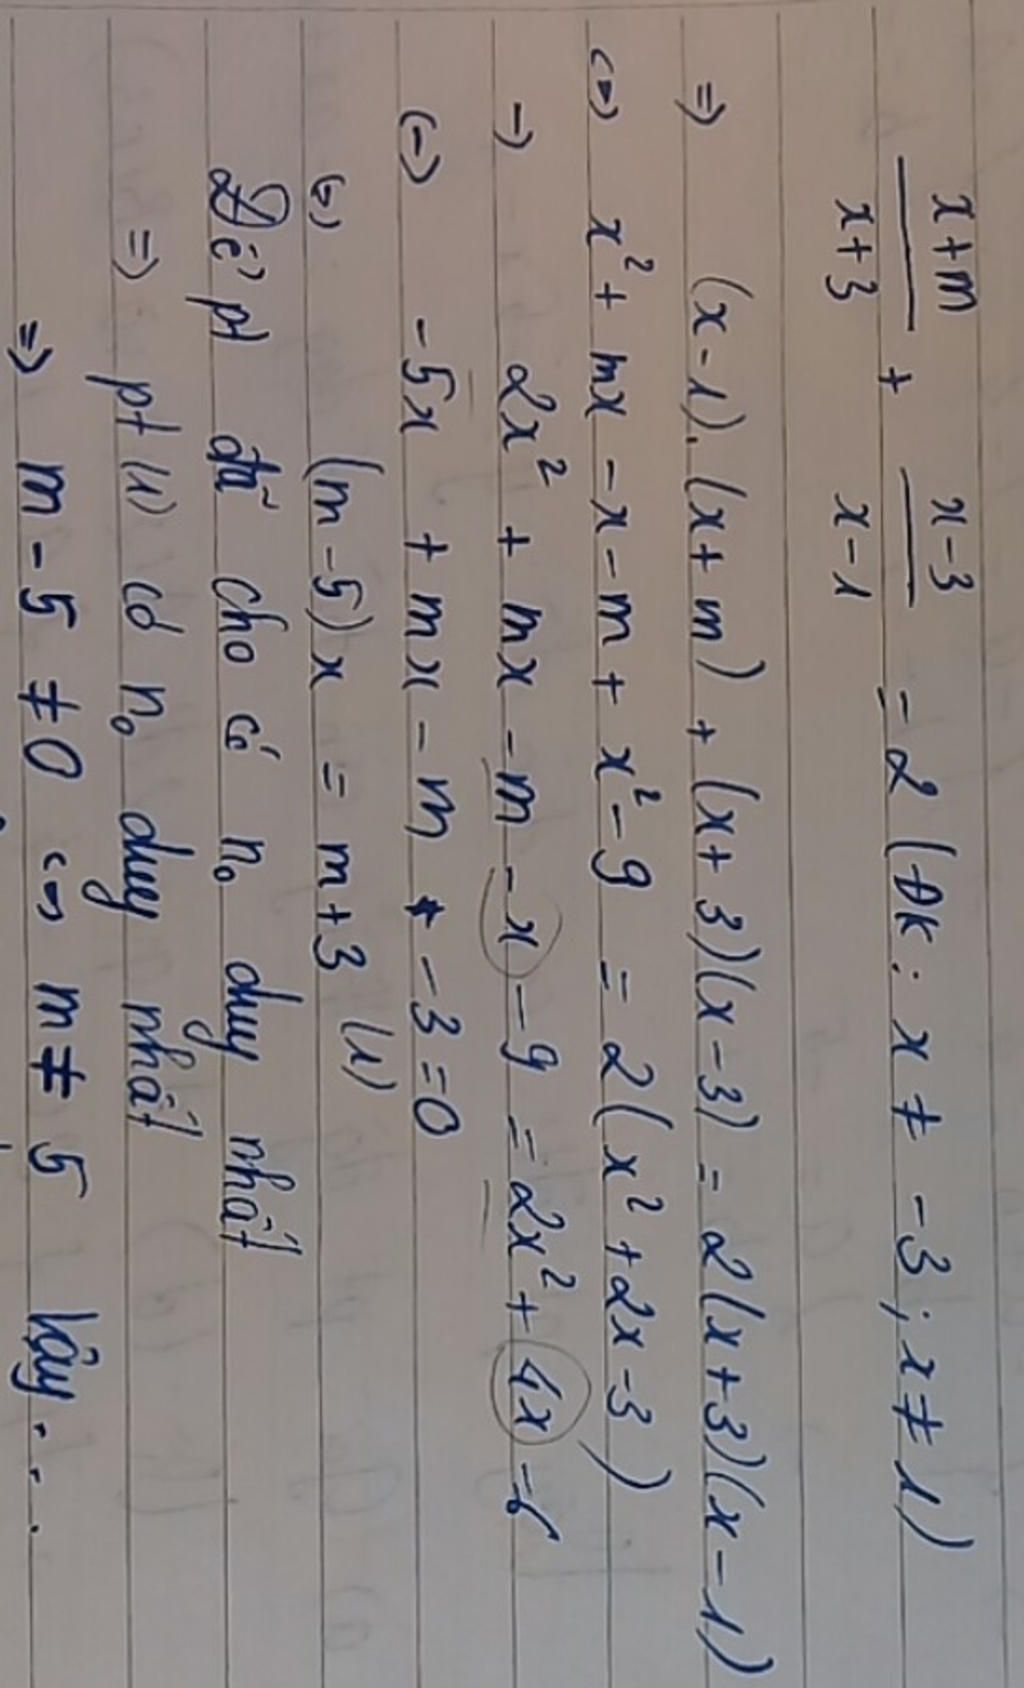 x+m/x+3 + x-3/x-1 = 2 (ĐK: x ≠ -3; x ≠ 1)
=> (x-1).(x+m) + (x+3)(x-3) = 2(x+3)(x-1)
<=> x² + mx - x - m + x² - 9 = 2(x² + 2x - 3)
-> 2x² + mx - m - x - 9 = 2x² + 4x - 6
<-> -5x + mx - m - 3 = 0
<=> (m-5)x = m+3 (1)
Để pt đã cho có n₀ duy nhất
=> pt (1) có n₀ duy nhất
=> m - 5 ≠ 0 <=> m ≠ 5 Vậy...